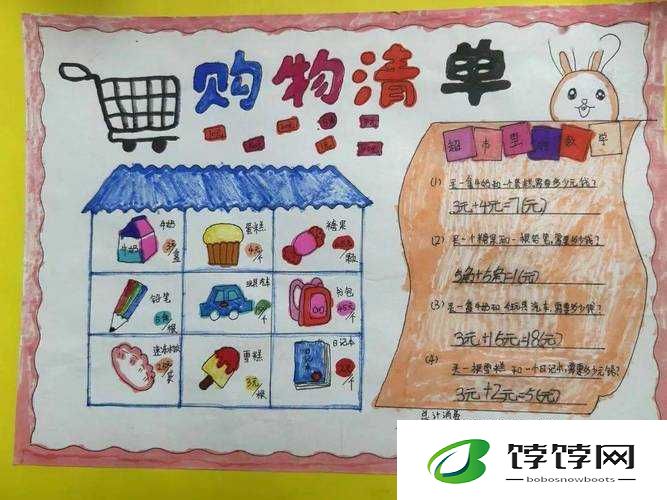 购物清单
超市里的数学
牛奶
牛奶
3元/盒
蛋糕
4元/个
糖果
5角/颗
铅笔
5角/根
玩具汽车
15元/个
书包
45元/个
速冻水饺
雪糕
3元/根
日记本
2元/个
(1) 买一盒牛奶和一个蛋糕,需要多少元钱?
3元+4元=7(元)
(2) 买一个糖果和一根铅笔,需要多少钱?
5角+5角=1(元)
(3) 买一盒牛奶和玩具汽车,需要多少钱?
3元+15元=18(元)
(4)
买一根雪糕和一个日记本,需要多少元钱?
3元+2元=5(元)
总计消费
饽饽网
bobosnowboots